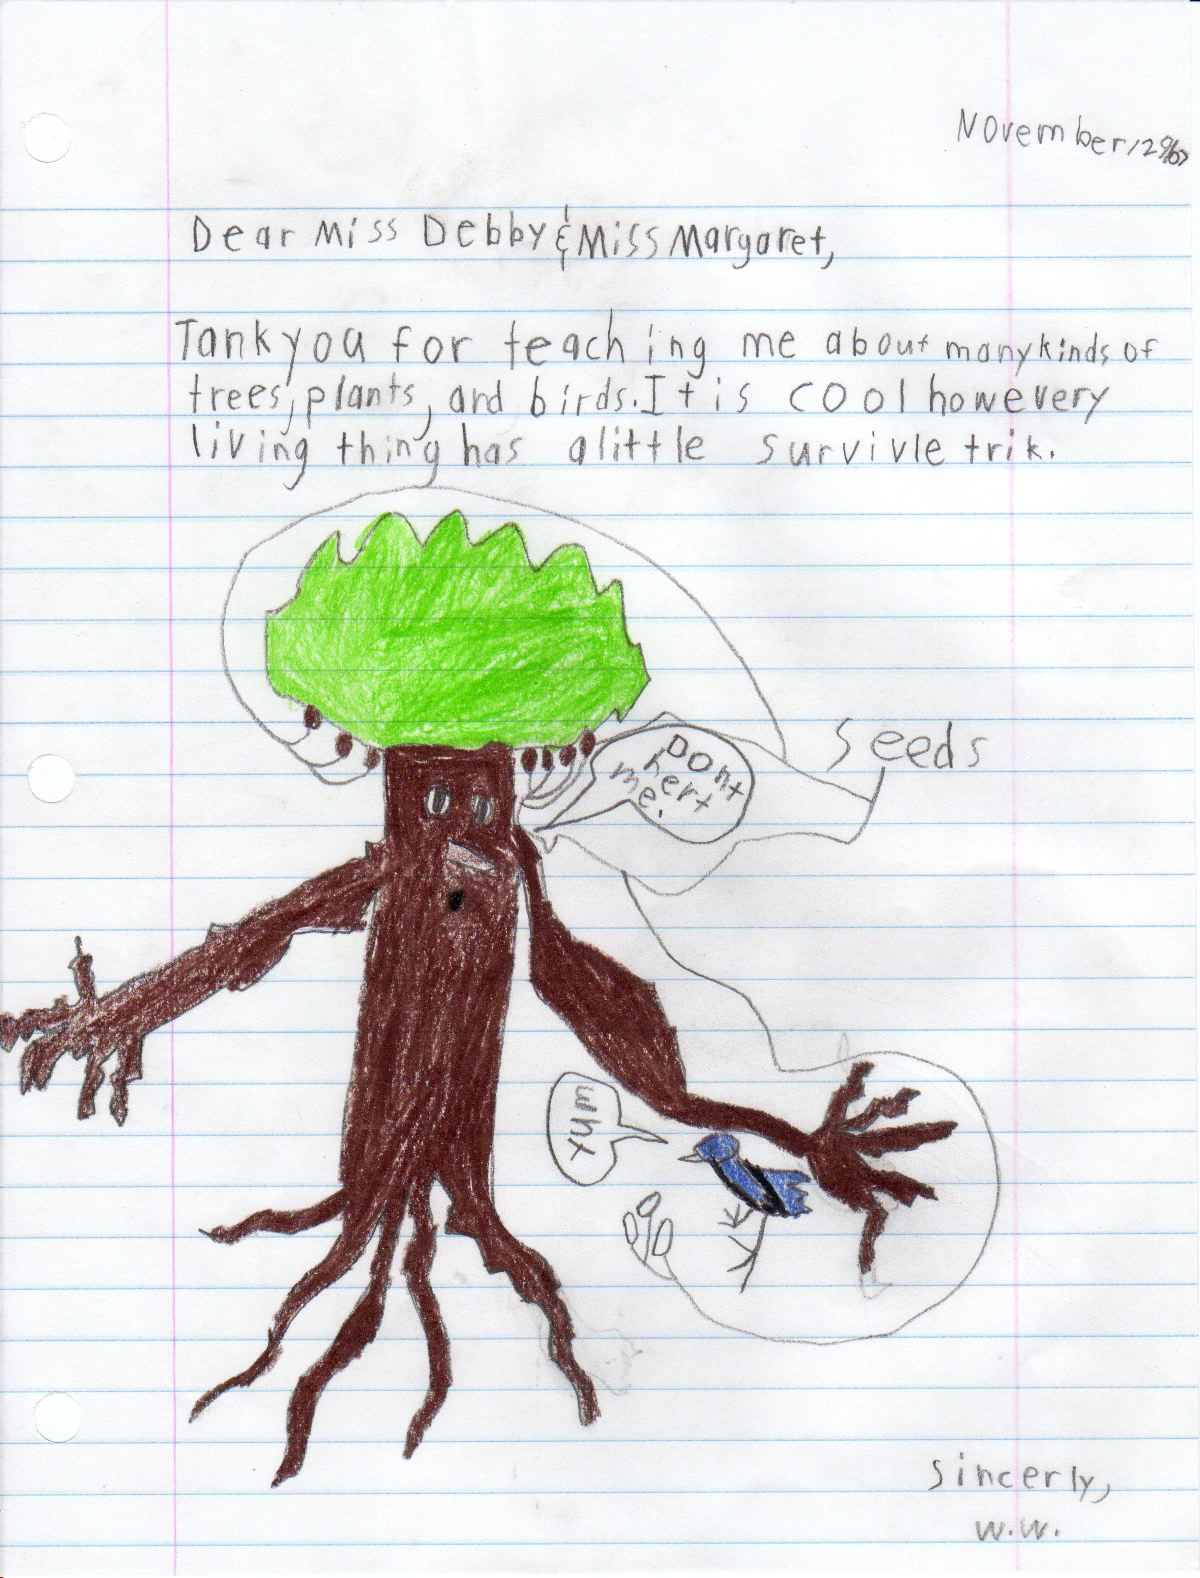 November,
Dear Miss Debby & Miss Margaret,
Tank you for teaching me about many kinds of
trees, plants, and birds. It is cool how every
living thing has a little survivle trik.
Seeds
Dont
hert
me.
wht
sincerly,
w.w.